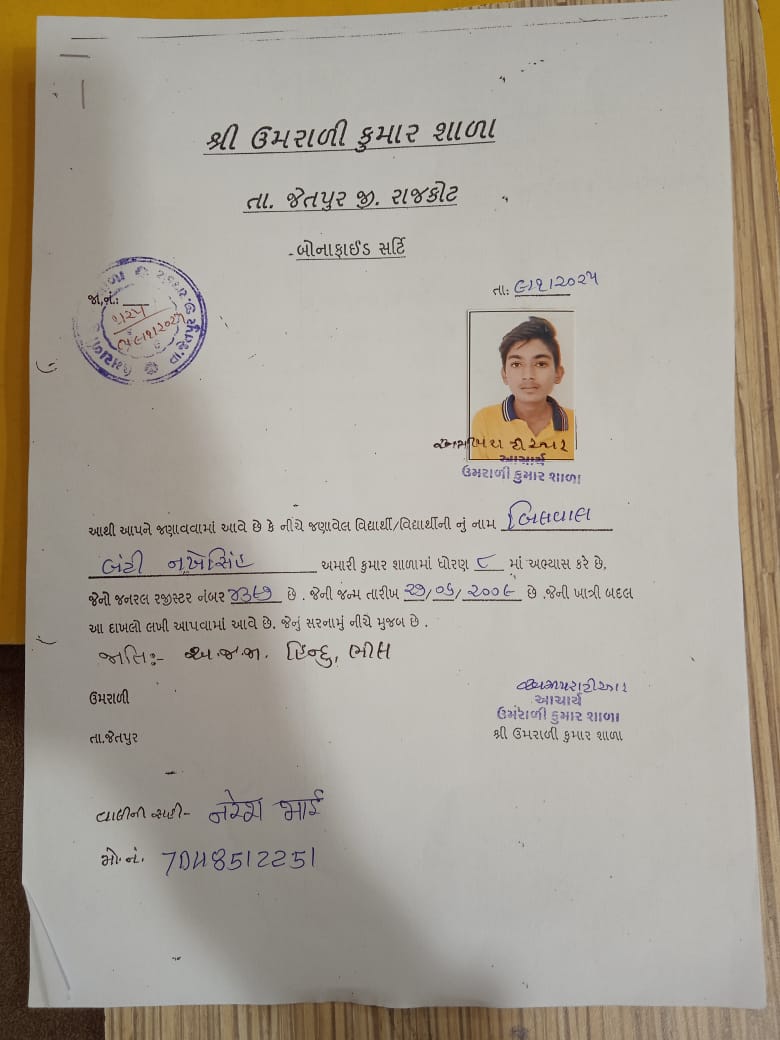 શ્રી ઉમરાળી કુમાર શાળા
તા. જેતપુર જી. રાજકોટ
-બોનાફાઈડ સર્ટિ
જા.નં.:
તા: ૯/૧/૨૦૨૫
આચાર્ય
ઉમરાળી કુમાર શાળા
આથી આપને જણાવવામાં આવે છે કે નીચે જણાવેલ વિદ્યાર્થી/વિદ્યાર્થીની નું નામ બિલવાલ
બંટી નરૂેસિંહ અમારી કુમાર શાળામાં ધોરણ ૮ માં અભ્યાસ કરે છે,
જેનો જનરલ રજીસ્ટર નંબર ૪૩૬૭ છે . જેની જન્મ તારીખ ૨૭/૦૬/૨૦૦૯ છે .જેની ખાત્રી બદલ
આ દાખલો લખી આપવામાં આવે છે. જેનું સરનામું નીચે મુજબ છે .
જાતિ:- અ.જ.જા. હિન્દુ, ભીલ
ઉમરાળી
આચાર્ય
ઉમરાળી કુમાર શાળા
તા.જેતપુર
શ્રી ઉમરાળી કુમાર શાળા
વાલીની સહી- નરેશ ભાઈ
મો.નં. 7048512251